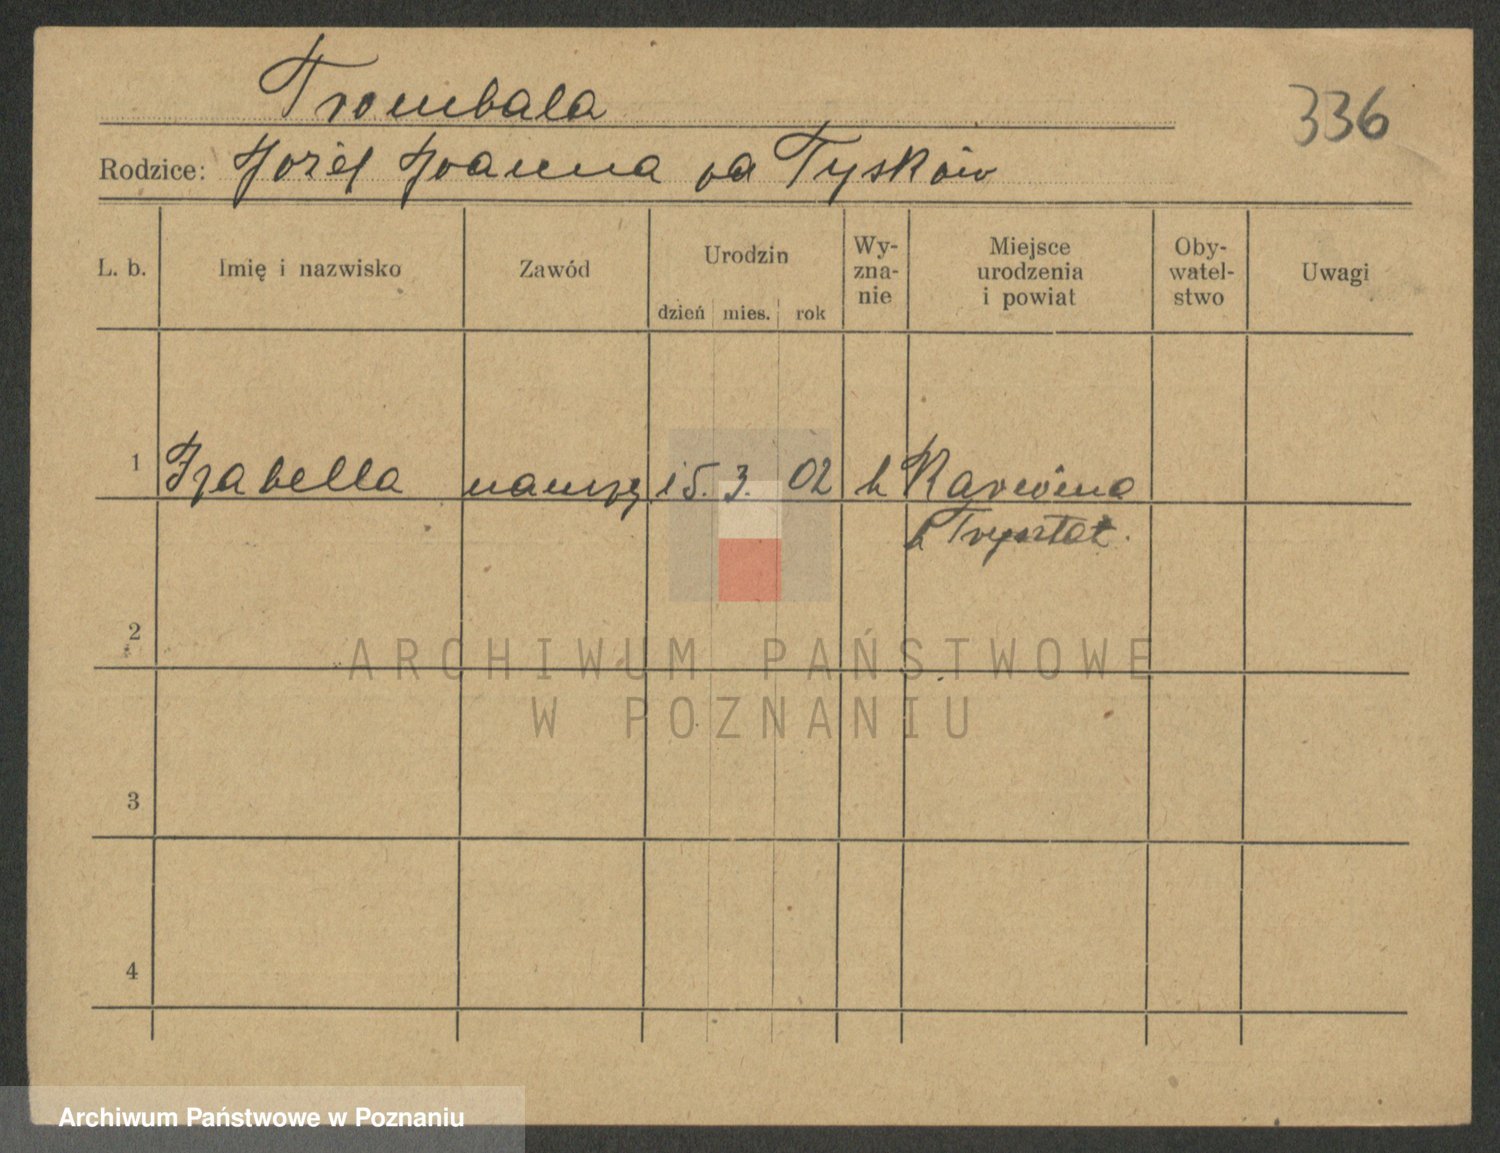 Trombala
336
Rodzice: Józef Joanna od Tysków
L. b.
Imię i nazwisko
Zawód
Urodzin
dzień mies. rok
Wy-
zna-
nie
Miejsce
urodzenia
i powiat
Oby-
watel-
stwo
Uwagi
1 Izabella naucz. 15. 3. 02 k Karwina
Frysztat.
2
3
4
ARCHIWUM PAŃSTWOWE
W POZNANIU
Archiwum Państwowe w Poznaniu